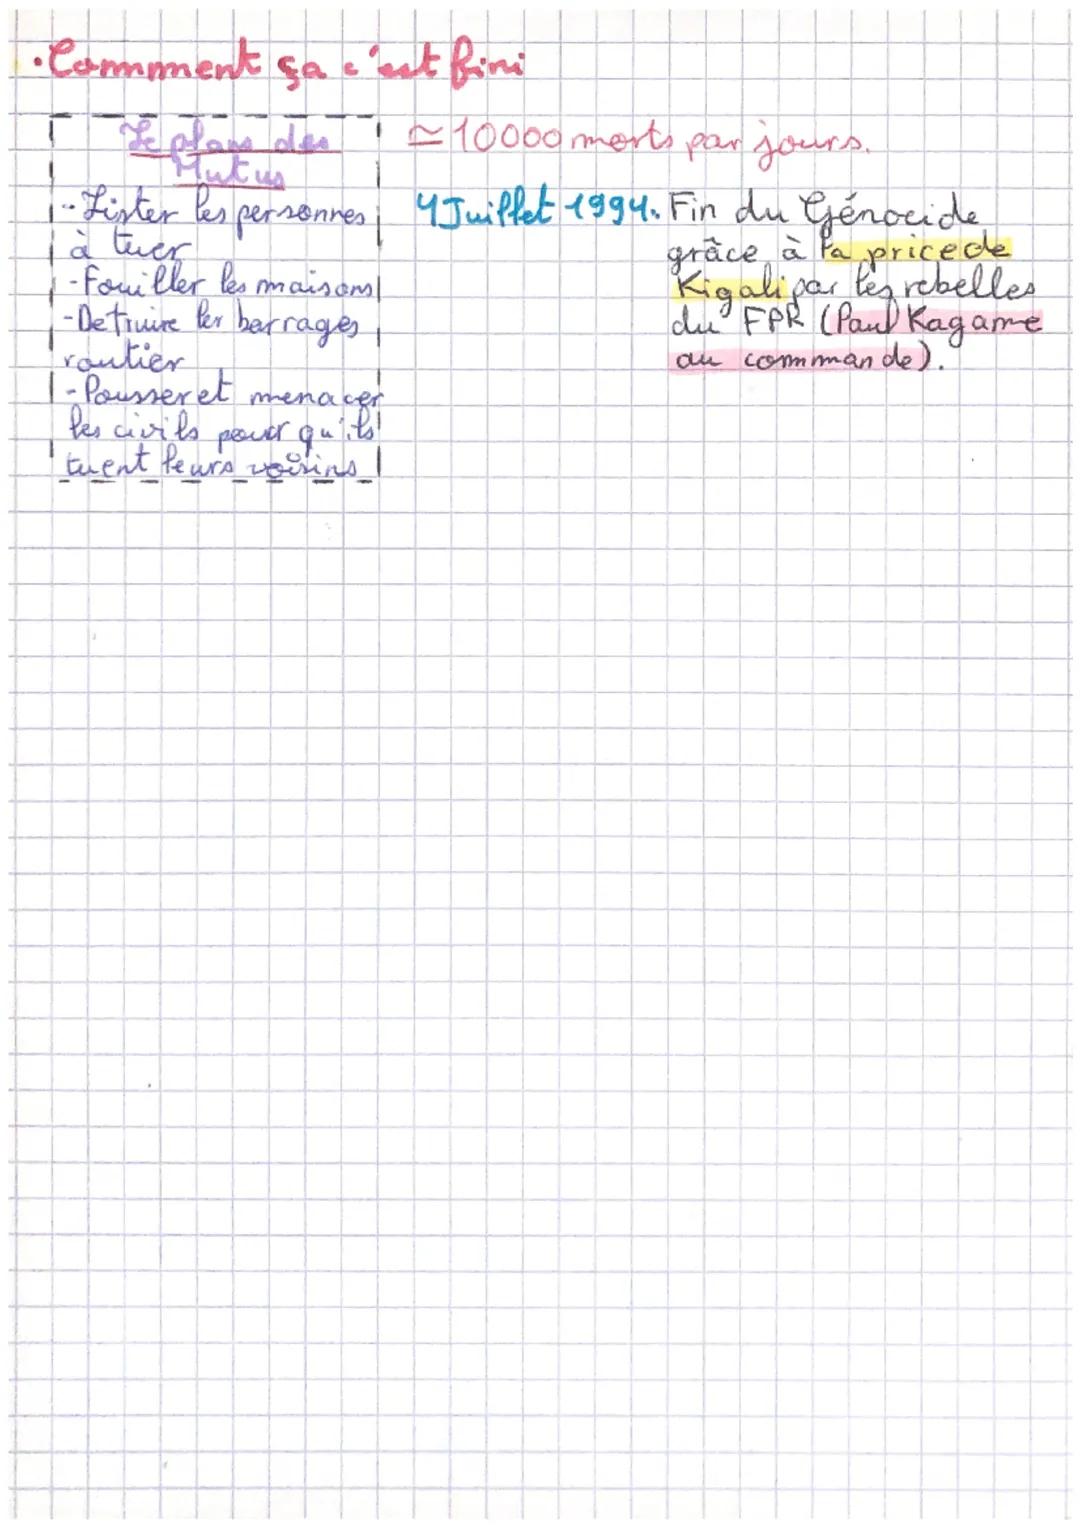 ·Commment ça c'est fini
Le plans des
Hutus
- Lister les personnes
à tuer
- Fouiller les maisons
- Detruire les barrages
routier
- Pousser et menacer
les civils pour qu'ils
tuent leurs voisins
≃ 10000 morts par jours.
4 Juillet 1994. Fin du Génocide
grâce à la price de
Kigali par les rebelles
du FPR (Paul Kagame
au commmande).